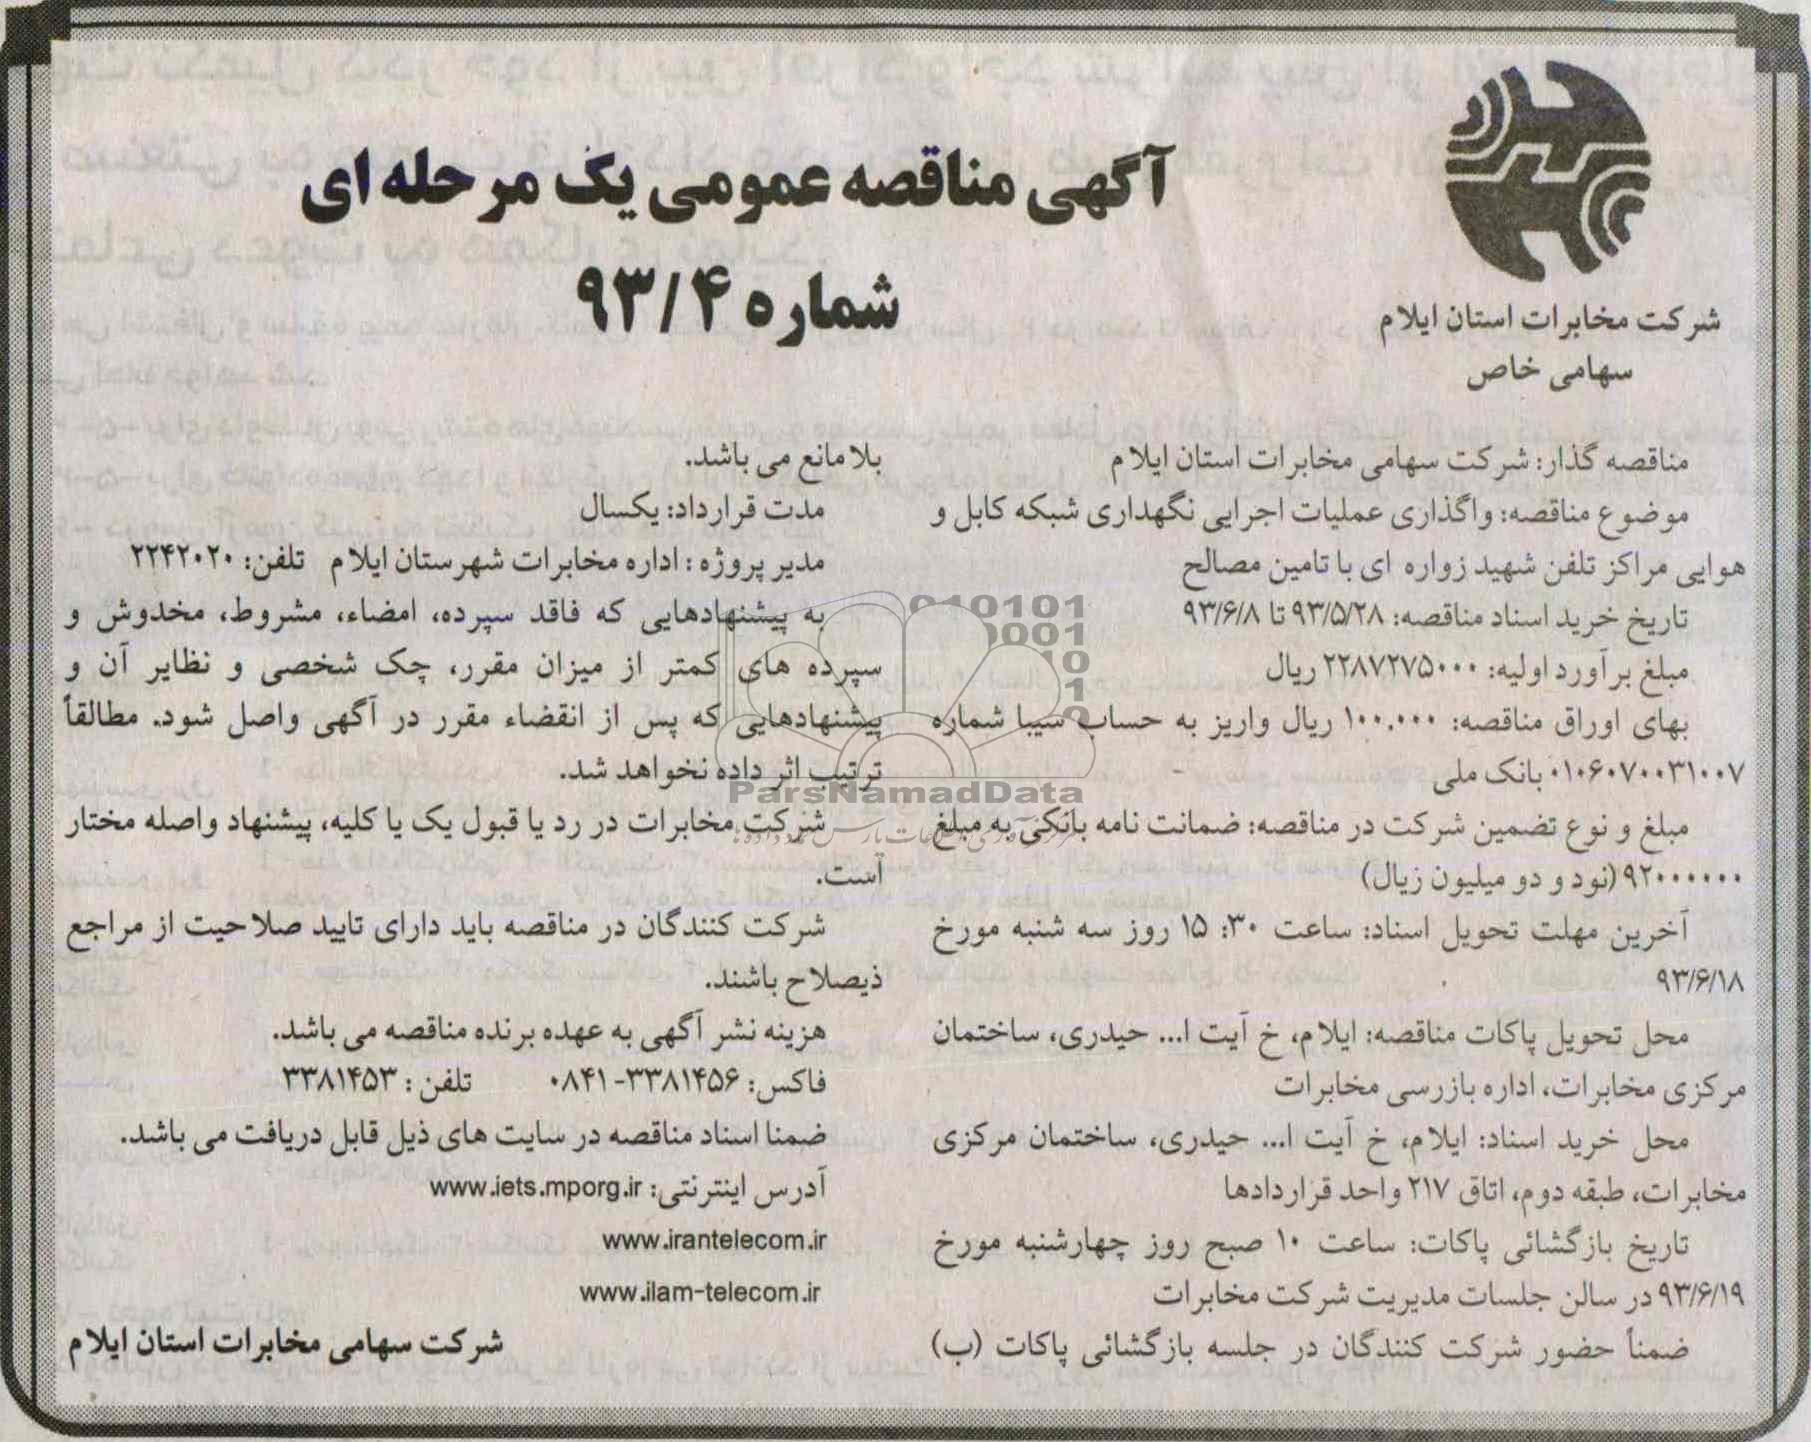 آگهی مناقصه عمومی یک مرحله ای
شماره ۹۳/۴
شرکت مخابرات استان ایلام
سهامی خاص
مناقصه گذار: شرکت سهامی مخابرات استان ایلام
موضوع مناقصه: واگذاری عملیات اجرایی نگهداری شبکه کابل و
هوایی مراکز تلفن شهید زواره ای با تامین مصالح
تاریخ خرید اسناد مناقصه: ۹۳/۵/۲۸ تا ۹۳/۶/۸
مبلغ برآورد اولیه: ۲۲۸۷۲۷۵۰۰۰ ریال
بهای اوراق مناقصه: ۱۰۰.۰۰۰ ریال واریز به حساب سیبا شماره
۰۱۰۶۰۷۰۰۳۱۰۰۷ بانک ملی
مبلغ و نوع تضمین شرکت در مناقصه: ضمانت نامه بانکی به مبلغ
۹۲۰۰۰۰۰۰ (نود و دو میلیون زیال)
آخرین مهلت تحویل اسناد: ساعت ۳۰: ۱۵ روز سه شنبه مورخ
۹۳/۶/۱۸
محل تحویل پاکات مناقصه: ایلام، خ آیت ا... حیدری، ساختمان
مرکزی مخابرات، اداره بازرسی مخابرات
محل خرید اسناد: ایلام، خ آیت ا... حیدری، ساختمان مرکزی
مخابرات، طبقه دوم، اتاق ۲۱۷ واحد قراردادها
تاریخ بازگشائی پاکات: ساعت ۱۰ صبح روز چهارشنبه مورخ
۹۳/۶/۱۹ در سالن جلسات مدیریت شرکت مخابرات
ضمناً حضور شرکت کنندگان در جلسه بازگشائی پاکات (ب)
بلامانع می باشد.
مدت قرارداد: یکسال
مدیر پروژه : اداره مخابرات شهرستان ایلام تلفن: ۲۲۴۲۰۲۰
به پیشنهادهایی که فاقد سپرده، امضاء، مشروط، مخدوش و
سپرده های کمتر از میزان مقرر، چک شخصی و نظایر آن و
پیشنهادهایی که پس از انقضاء مقرر در آگهی واصل شود. مطالقاً
ترتیب اثر داده نخواهد شد.
شرکت مخابرات در رد یا قبول یک یا کلیه، پیشنهاد واصله مختار
است.
شرکت کنندگان در مناقصه باید دارای تایید صلاحیت از مراجع
ذیصلاح باشند.
هزینه نشر آگهی به عهده برنده مناقصه می باشد.
فاکس: ۳۳۸۱۴۵۶-۰۸۴۱ تلفن : ۳۳۸۱۴۵۳
ضمنا اسناد مناقصه در سایت های ذیل قابل دریافت می باشد.
آدرس اینترنتی: www.iets.mporg.ir
www.irantelecom.ir
www.ilam-telecom.ir
شرکت سهامی مخابرات استان ایلام
ParsNamadData